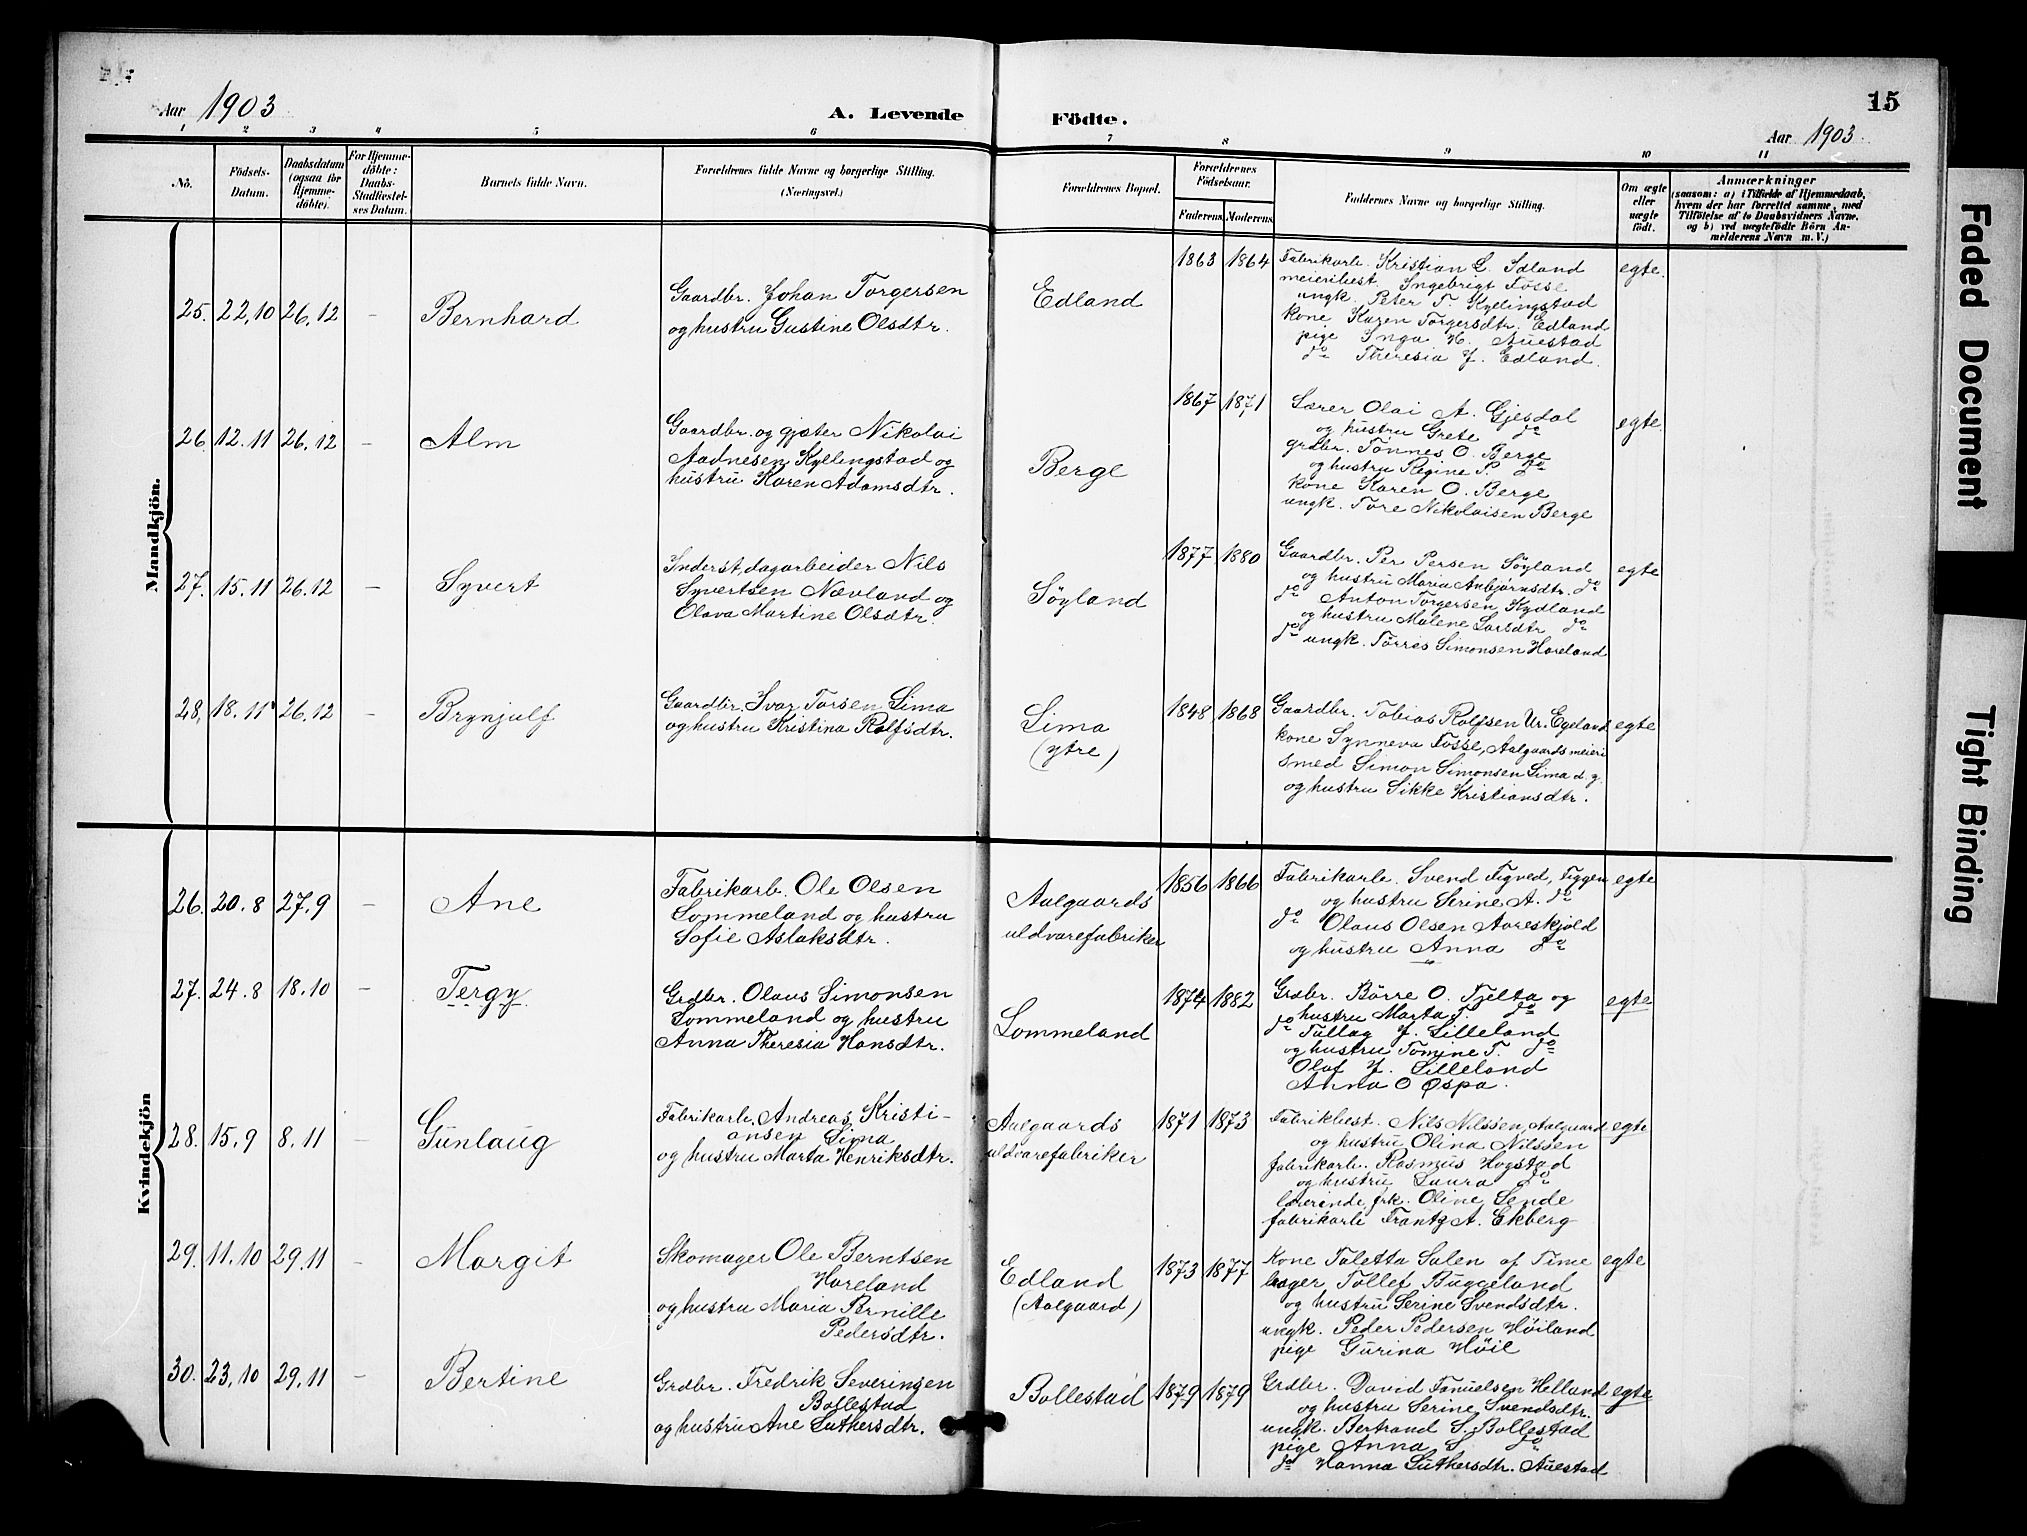 Aar 1903
A. Levende
Födte.
15
Aar 1903
1 2 3 4 5 6 7 8 9 10 11
No.
Födsels-
Datum.
Daabsdatum
(ogsaa for
Hjemme-
döbte).
For Hjemme-
döbte:
Daabs-
Stadfæstel-
ses Datum.
Barnets fulde Navn.
Forældrenes fulde Navne og borgerlige Stilling.
(Næringsvei.)
Forældrenes Bopæl.
Forældrenes
Födselsaar.
Faderens. Moderens.
Faddernes Navne og borgerlige Stilling.
Om ægte
eller
uægte
födt.
Anmærkninger
(saasom: a) i Tilfælde af Hjemmedaab,
hvem der har forrettet samme, med
Tilföielse af to Daabsvidners Navne.
og b) ved uægtefödte Börn An-
melderens Navn m. V.)
Mandkjön.
25. 22,10 26.12 – Bernhard
Gaardbr. Johan Torgersen
og hustru Gustine Olsdtr.
Edland
1863 1864
Fabrikarb. Kristian L. Idland
meieribest. Ingebrigt Fosse
ungk. Peter T. Kyllingstad
kone Karen Torgersdtr. Edland
pige Inga H. Auestad
do Theresia J. Edland.
egte.
26. 12.11 26.12 – Alm
Gaardbr. og gjæter Nikolai
Aadnesen Kyllingstad og
hustru Karen Adamsdtr.
Berge
1867 1871
Lærer Olai A. Gjesdal
og hustru Grete do
grdbr. Tønnes O. Berge
og hustru Regine P. do
kone Karen O. Berge
ungk. Tore Nikolaisen Berge
egte.
27. 15.11 26.12 – Syvert
Inderst, dagarbeider Nils
Syvertsen Nævland og
Olava Martine Olsdtr.
Söyland
1877 1880
Gaardbr. Per Persen Söyland
og hustru Maria Anbjørnsdtr. do
do Anton Torgersen Kydland
og hustru Malene Larsdtr do
do ungk. Törres Simonsen Hareland
egte
28. 18.11 26.12 – Brynjulf
Gaardbr. Ivar Torsen Lima
og hustru Kristina Rolfsdtr.
Lima
(ytre)
1848 1868
Gaardbr. Tobias Rolfsen Ur. Egeland
kone Synneva Fosse, Aalgaards meieri
smed Simon Simonsen Lima d. y.
og hustru Sikke Kristiansdtr.
egte
Kvindekjön
26. 20.8 27.9 – Ane
Fabrikarb. Ole Olsen
Lommeland og hustru
Sofie Aslaksdtr.
Aalgaards
uldvarefabriker
1856 1866
Fabrikarb. Svend Tigved, Figgen
og hustru Serine A. do
do Olaus Olsen Aareskjold
og hustru Anna do
egte
27. 24.8 18.10 – Tergy
Grdbr. Olaus Simonsen
Lommeland og hustru
Anna Theresia Hansdtr.
Lommeland
1874 1882
Grdbr. Börre O. Tjelta og
hustru Marta T. do
do Tallag J. Lilleland
og hustru Tomine T. do
Olaf J. Lilleland
Anna O Øspa.
egte
28. 15.9 8.11 – Gunlaug
Fabrikarb. Andreas Kristi-
ansen Lima
og hustru Marta Henriksdtr.
Aalgaards
uldvarefabriker
1871 1873
Fabrikbest. Nils Nilssen, Aalgaard
og hustru Olina Nilssen
fabrikarb. Rasmus Hogstad
og hustru Laura do
lærerinde, frk. Oline Lende
fabrikarb Frantz A. Ekberg
egte
29. 11.10 29.11 – Margit
Skomager Ole Berntsen
Hareland
og hustru Maria Pernille
Pedersdtr.
Edland
(Aalgaard)
1873 1877
Kone Taletta Salen af Time
bager Tollef Buggeland
og hustru Serine Svendsdtr.
ungk. Peder Pedersen Höiland
pige Gurina Höil
egte
30. 23.10 29.11 – Bertine
Grdbr. Fredrik Severinsen
Bollestad
og hustru Ane Luthersdtr.
Bollestad
1879 1879
Grdbr. David Tønnelsen Helland
og hustru Serine Svendsdtr.
ungk. Bertrand S. Bollestad
pige Anna S do
do Hanna Luthersdtr. Auestad
egte
Faded Document
Tight Binding